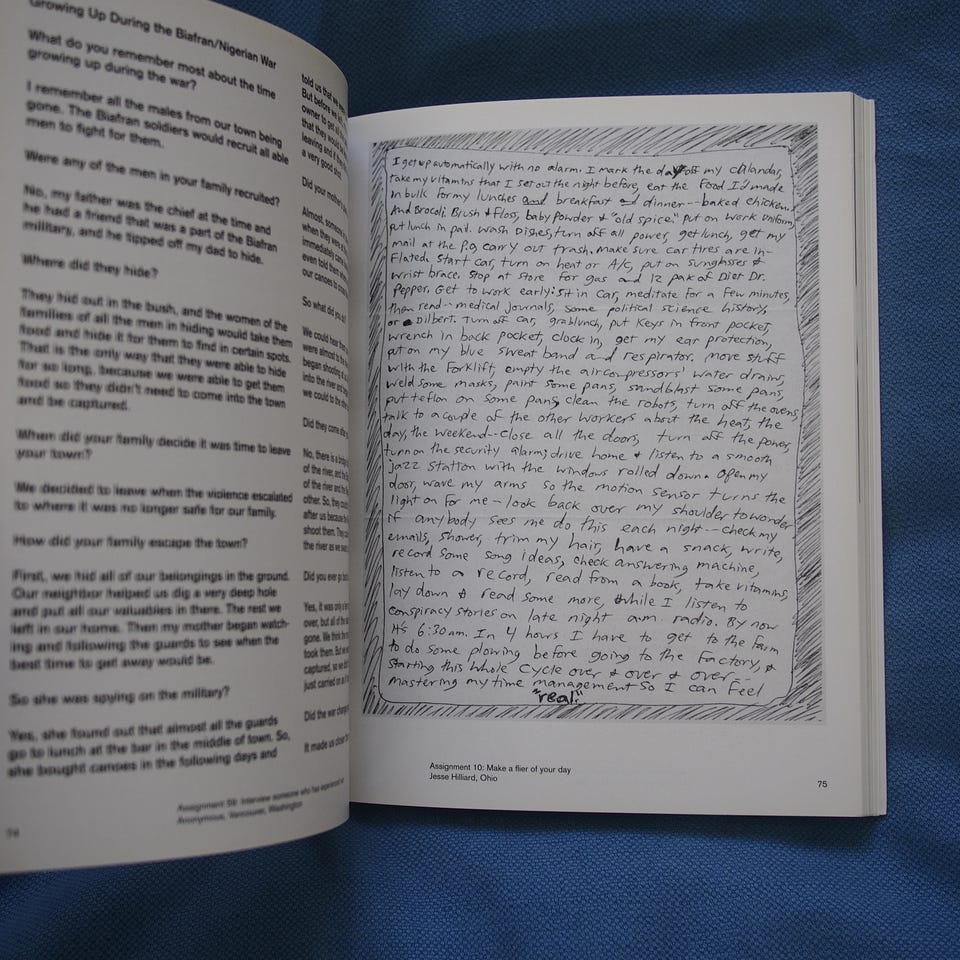 Growing Up During the Biafran/Nigerian War
What do you remember most about the time
growing up during the war?
I remember all the males from our town being
gone. The Biafran soldiers would recruit all able
men to fight for them.
Were any of the men in your family recruited?
No, my father was the chief at the time and
he had a friend that was a part of the Biafran
military, and he tipped off my dad to hide.
Where did they hide?
They hid out in the bush, and the women of the
families of all the men in hiding would take them
food and hide it for them to find in certain spots.
That is the only way that they were able to hide
for so long, because we were able to get them
food so they didn't need to come into the town
and be captured.
When did your family decide it was time to leave
your town?
We decided to leave when the violence escalated
to where it was no longer safe for our family.
How did your family escape the town?
First, we hid all of our belongings in the ground.
Our neighbor helped us dig a very deep hole
and put all our valuables in there. The rest we
left in our home. Then my mother began watch-
ing and following the guards to see when the
best time to get away would be.
So she was spying on the military?
Yes, she found out that almost all the guards
go to lunch at the bar in the middle of town. So,
she bought canoes in the following days and
Assignment 59: Interview someone who has experienced
Anonymous, Vancouver, Washington
74
told us that we
But before we
owner to get all
that they would
leaving and if they
a very good shot.
Did your mother's
Almost, some
when they were
immediately
even told them where
our canoes to
So what did you
We could hear them
were almost to the
began shooting
into the river and
we could to the other
Did they come after
No, there is a bridge
of the river, and the
of the river and the
other. So, they could
after us because the
shoot them. They
the river as we
Did you ever go
Yes, it was only a
over, but all of our
gone. We think the
took them. But we
captured, so we
just carried on all
Did the war change
It made us closer
I get up automatically with no alarm. I mark the day off my calandar,
take my vitamins that I set out the night before, eat the food I'd made
in bulk for my lunches and breakfast and dinner--baked chicken.
And Brocoli. Brush & Floss, baby powder & "old spice." put on work uniform,
put lunch in pail. Wash dishes, turn off all power, get lunch, get my
mail at the P.O, carry out trash. make sure car tires are in-
flated. Start car, turn on heat or A/C, put on sunglasses &
wrist brace. Stop at store for gas and 12 pak of Diet Dr.
Pepper. Get to work early: sit in car, meditate for a few minutes,
then read--medical journals, some political science history,
or Dilbert. Turn off car, grab lunch, put keys in front pocket,
wrench in back pocket, clock in, get my ear protection,
put on my blue sweat band and respirator. move stuff
with the forklift, empty the air compressors' water drains,
weld some masks, paint some pans, sandblast some pans,
put teflon on some pans, clean the robots, turn off the ovens,
talk to a couple of the other workers about the heat, the
day, the weekend--close all the doors, turn off the power,
turn on the security alarm, drive home & listen to a smooth
jazz station with the windows rolled down. Open my
door, wave my arms so the motion sensor turns the
light on for me -- look back over my shoulder to wonder
if anybody sees me do this each night -- check my
emails, shower, trim my hair, have a snack, write,
record some song ideas, check answering machine,
listen to a record, read from a book, take vitamins,
lay down & read some more, while I listen to
conspiracy stories on late night a.m. radio. By now
it's 6:30 am. In 4 hours I have to get to the farm
to do some plowing before going to the factory, &
starting this whole cycle over & over & over--
mastering my time management so I can feel
"real."
Assignment 10: Make a flier of your day
Jesse Hilliard, Ohio
75